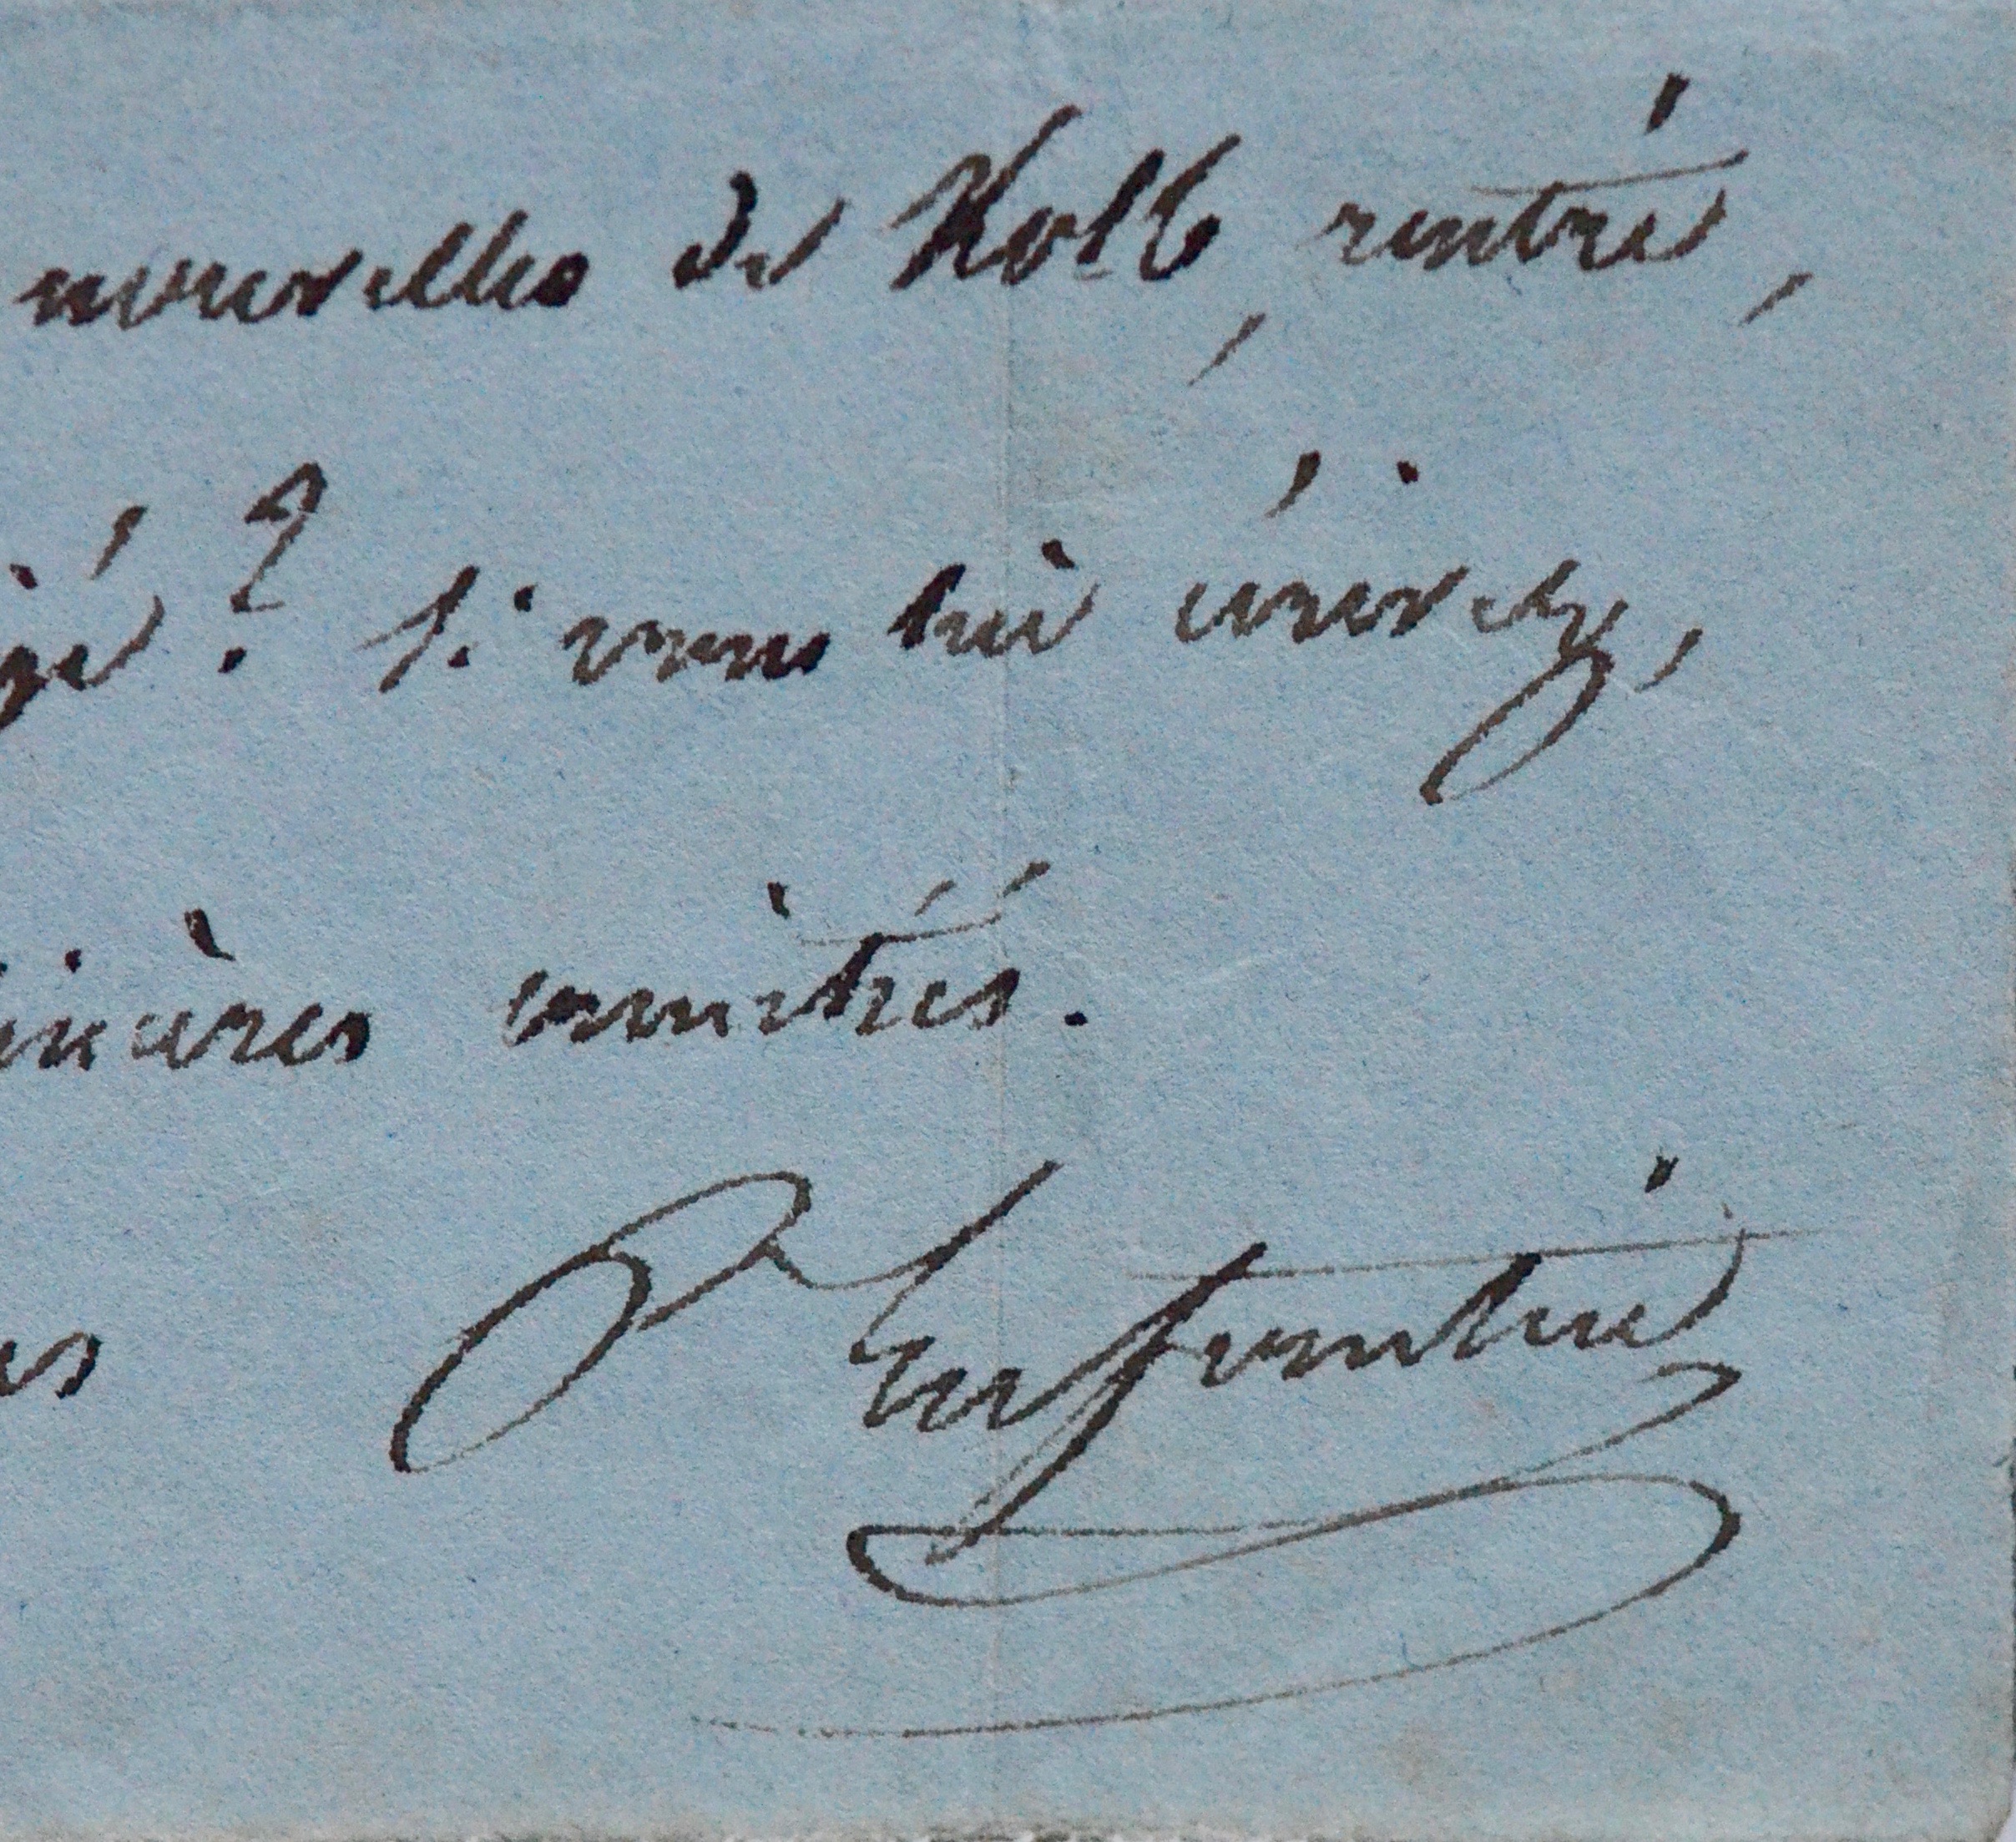 nouvelles de Kolb, rentré,
gé? Si vous lui écrivez,
inières amitiés.
es P Enfantin